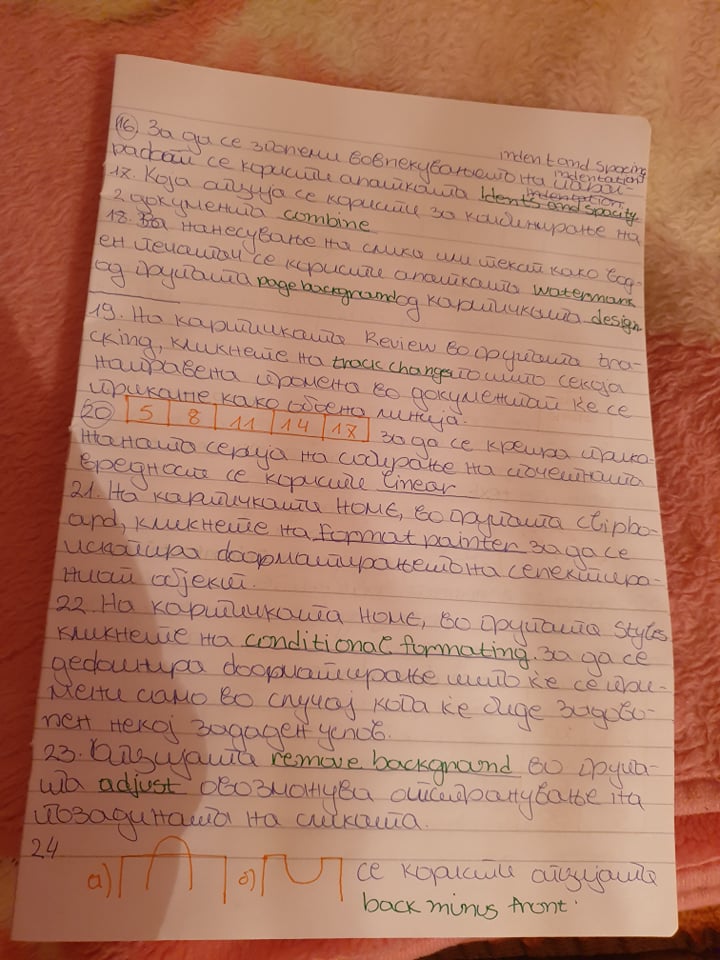 indent and spacing
16 За да се зголеми вовлекувањето на пара-
indentation
графот се користи алатката Idents and spacity
indentation
17. Која опција се користи за комбинирање на
2 документа combine
18. За нанесување на слика или текст како вод-
ен печатач се користи алатката watermark
од групата page background од картичката design
19. На картичката Review во групата tra-
cking, кликнете на track changes то што секоја
направена промена во документот ќе се
прикаже како обоена линија.
20 5 8 11 14 17 за да се креира прика-
жаната серија на собирање на почетната
вредност се користи linear
21. На картичката HOME, во групата clipbo-
ard, кликнете на format painter за да се
ископира форматирањето на селектира-
ниот објект.
22. На картичката HOME, во групата Styles
кликнете на conditional formating. за да се
дефинира форматирање што ќе се при-
мени само во случај кога ќе биде задово-
лен некој зададен услов.
23. Опцијата remove background во група-
та adjust овозможува отстранување на
позадината на сликата.
24
а) б) се користи опцијата
back minus front.